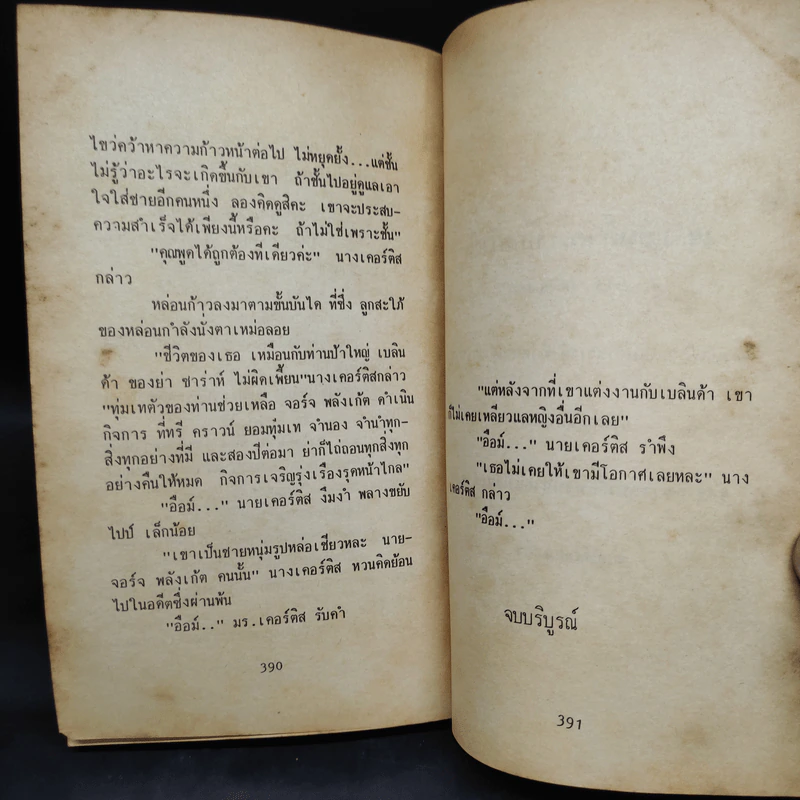 ไขว่คว้าหาความก้าวหน้าต่อไป ไม่หยุดยั้ง...แต่ชั้น
ไม่รู้ว่าอะไรจะเกิดขึ้นกับเขา ถ้าชั้นไปอยู่ดูแลเอา
ใจใส่ชายอีกคนหนึ่ง ลองคิดดูสิคะ เขาจะประสบ-
ความสำเร็จได้เพียงนี้หรือคะ ถ้าไม่ใช่เพราะชั้น"
"คุณพูดได้ถูกต้องทีเดียวค่ะ" นางเคอร์ติส
กล่าว
หล่อนก้าวลงมาตามขั้นบันได ที่ซึ่ง ลูกสะใภ้
ของหล่อนกำลังนั่งตาเหม่อลอย
"ชีวิตของเธอ เหมือนกับท่านป้าใหญ่ เบลิน
ด้า ของย่า ซาร่าห์ ไม่ผิดเพี้ยน"นางเคอร์ติสกล่าว
"ทุ่มเทตัวของท่านช่วยเหลือ จอร์จ พลังเก้ต ดำเนิน
กิจการ ที่ทรี คราวน์ ยอมทุ่มเท จำนอง จำนำทุก-
สิ่งทุกอย่างที่มี และสองปีต่อมา ย่าก็ไถ่ถอนทุกสิ่งทุก
อย่างคืนให้หมด กิจการเจริญรุ่งเรืองรุดหน้าไกล"
"อือม์..." นายเคอร์ติส งึมงำ พลางขยับ
ไปป์ เล็กน้อย
"เขาเป็นชายหนุ่มรูปหล่อเชียวหละ นาย-
จอร์จ พลังเก้ต คนนั้น" นางเคอร์ติส หวนคิดย้อน
ไปในอดีตซึ่งผ่านพ้น
"อือม์.." มร.เคอร์ติส รับคำ
390
"แต่หลังจากที่เขาแต่งงานกับเบลินด้า เขา
ก็ไม่เคยเหลียวแลหญิงอื่นอีกเลย"
"อือม์..." นายเคอร์ติส รำพึง
"เธอไม่เคยให้เขามีโอกาศเลยหละ" นาง
เคอร์ติส กล่าว
"อือม์..."
จบบริบูรณ์
391